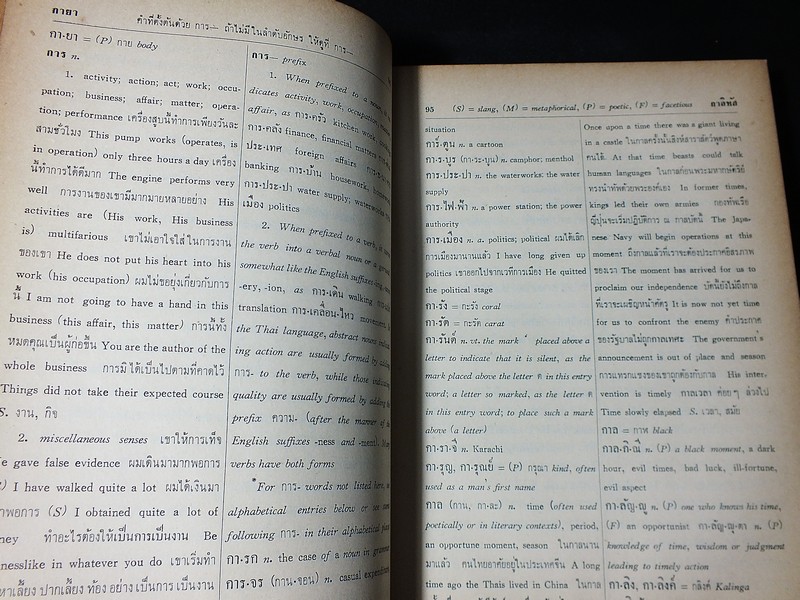 กายา
คำที่ตั้งต้นด้วย การ— ถ้าไม่มีในลำดับอักษร ให้ดูที่ การ—
กา·ยา = (P) กาย body
การ n.
1. activity; action; act; work; occu-
pation; business; affair; matter; opera-
tion; performance เครื่องสูบน้ำทำการเพียงวันละ
สามชั่วโมง This pump works (operates, is
in operation) only three hours a day เครื่อง
นี้ทำการได้ดีมาก The engine performs very
well การงานของเขามีมากมายหลายอย่าง His
activities are (His work, His business
is) multifarious เขาไม่เอาใจใส่ในการงาน
ของเขา He does not put his heart into his
work (his occupation) ผมไม่ขอยุ่งเกี่ยวกับการ
นี้ I am not going to have a hand in this
business (this affair, this matter) การนี้ทั้ง
หมดคุณเป็นผู้ก่อขึ้น You are the author of the
whole business การมิได้เป็นไปตามที่คาดไว้
Things did not take their expected course
S. งาน, กิจ
2. miscellaneous senses เขาให้การเท็จ
gave false evidence ผมเดินมามากพอการ
I have walked quite a lot ผมได้เงินมา
(S) I obtained quite a lot of
ทำอะไรต้องให้เป็นการเป็นงาน Be
in whatever you do เขาเริ่มทำ
ปากเสียง ท้อง อย่าง เป็นการ เป็นงาน
การ— prefix
1. When prefixed to a noun, it
dicates activity, work, occupation,
affair, as การ-ครัว kitchen work,
การ-คลัง finance, financial matters
ประ-เทศ foreign affairs
banking การ-บ้าน housework,
การ-ประ-ปา water supply; waterworks
เมือง politics
2. When prefixed to a verb, it
the verb into a verbal noun or a
somewhat like the English suffixes -ing,
-ery, -ion, as การ-เดิน walking
translation การ-เคลื่อน-ไหว movement
the Thai language, abstract nouns
ing action are usually formed by adding
การ- to the verb, while those
quality are usually formed by adding the
prefix ความ- (after the manner of
English suffixes -ness and -ment).
verbs have both forms
For การ- words not listed here,
alphabetical entries below or
following การ- in their alphabetical
กา-รก n. the case of a noun in grammar
การ-จร (กาน-จอน) n. casual
95 (S) = slang, (M) = metaphorical, (P) = poetic, (F) = facetious กาลิทัส
situation
การ์-ตูน n. a cartoon
กา-ร-บูร (กา-ระ-บูน) n. camphor; menthol
การ-ประ-ปา n. the waterworks: the water
supply
การ-ไฟ-ฟ้า n. a power station; the power
authority
การ-เมือง n. a. politics; political ผมได้เลิก
การเมืองมานานแล้ว I have long given up
politics เขาออกไปจากเวทีการเมือง He quitted
the political stage
กา-รัง = กะรัง coral
กา-รัต = กะรัต carat
กา-รันต์ n. vt. the mark ์ placed above a
letter to indicate that it is silent, as the
mark placed above the letter ต in this entry
word; a letter so marked, as the letter ต
in this entry word; to place such a mark
above (a letter)
กา-รา-จี n. Karachi
กา-รุญ, กา-รุณย์ = (P) กรุณา kind, often
used as a man's first name
กาล (กาน, กา-ละ) n. time (often used
poetically or in literary contexts), period,
an opportune moment, season ในกาลนาน
มาแล้ว คนไทยอาศัยอยู่ในประเทศจีน A long
time ago the Thais lived in China ในกาล
Once upon a time there was a giant living
in a castle ในกาลครั้งนั้นสิงห์สาราสัตว์พูดภาษา
คนได้ At that time beasts could talk
human languages ในกาลก่อนพระมหากษัตริย์
ทรงนำทัพด้วยพระองค์เอง In former times,
kings led their own armies กองทัพเรือ
ญี่ปุ่นจะเริ่มปฏิบัติการ ณ กาลบัดนี้ The Japa-
nese Navy will begin operations at this
moment ถึงกาลแล้วที่เราจะต้องประกาศอิสรภาพ
ของเรา The moment has arrived for us to
proclaim our independence บัดนี้ยังไม่ถึงกาล
ที่เราจะเผชิญหน้าศัตรู It is now not yet time
for us to confront the enemy คำประกาศ
ของรัฐบาลไม่ถูกกาลเทศะ The government's
announcement is out of place and season
การแทรกแซงของเขาถูกต้องกับกาล His inter-
vention is timely กาลเวลา ค่อย ๆ ล่วงไป
Time slowly elapsed S. เวลา, สมัย
กาฬ = กาฬ black
กาล-กิ-ณี n. (P) a black moment, a dark
hour, evil times, bad luck, ill-fortune,
evil aspect
กา-ลัญ-ญู n. (P) one who knows his time,
(F) an opportunist กา-ลัญ-ญุ-ตา n. (P)
knowledge of time, wisdom or judgment
leading to timely action
กา-ลิง, กา-ลิงค์ = กลิงค์ Kalinga